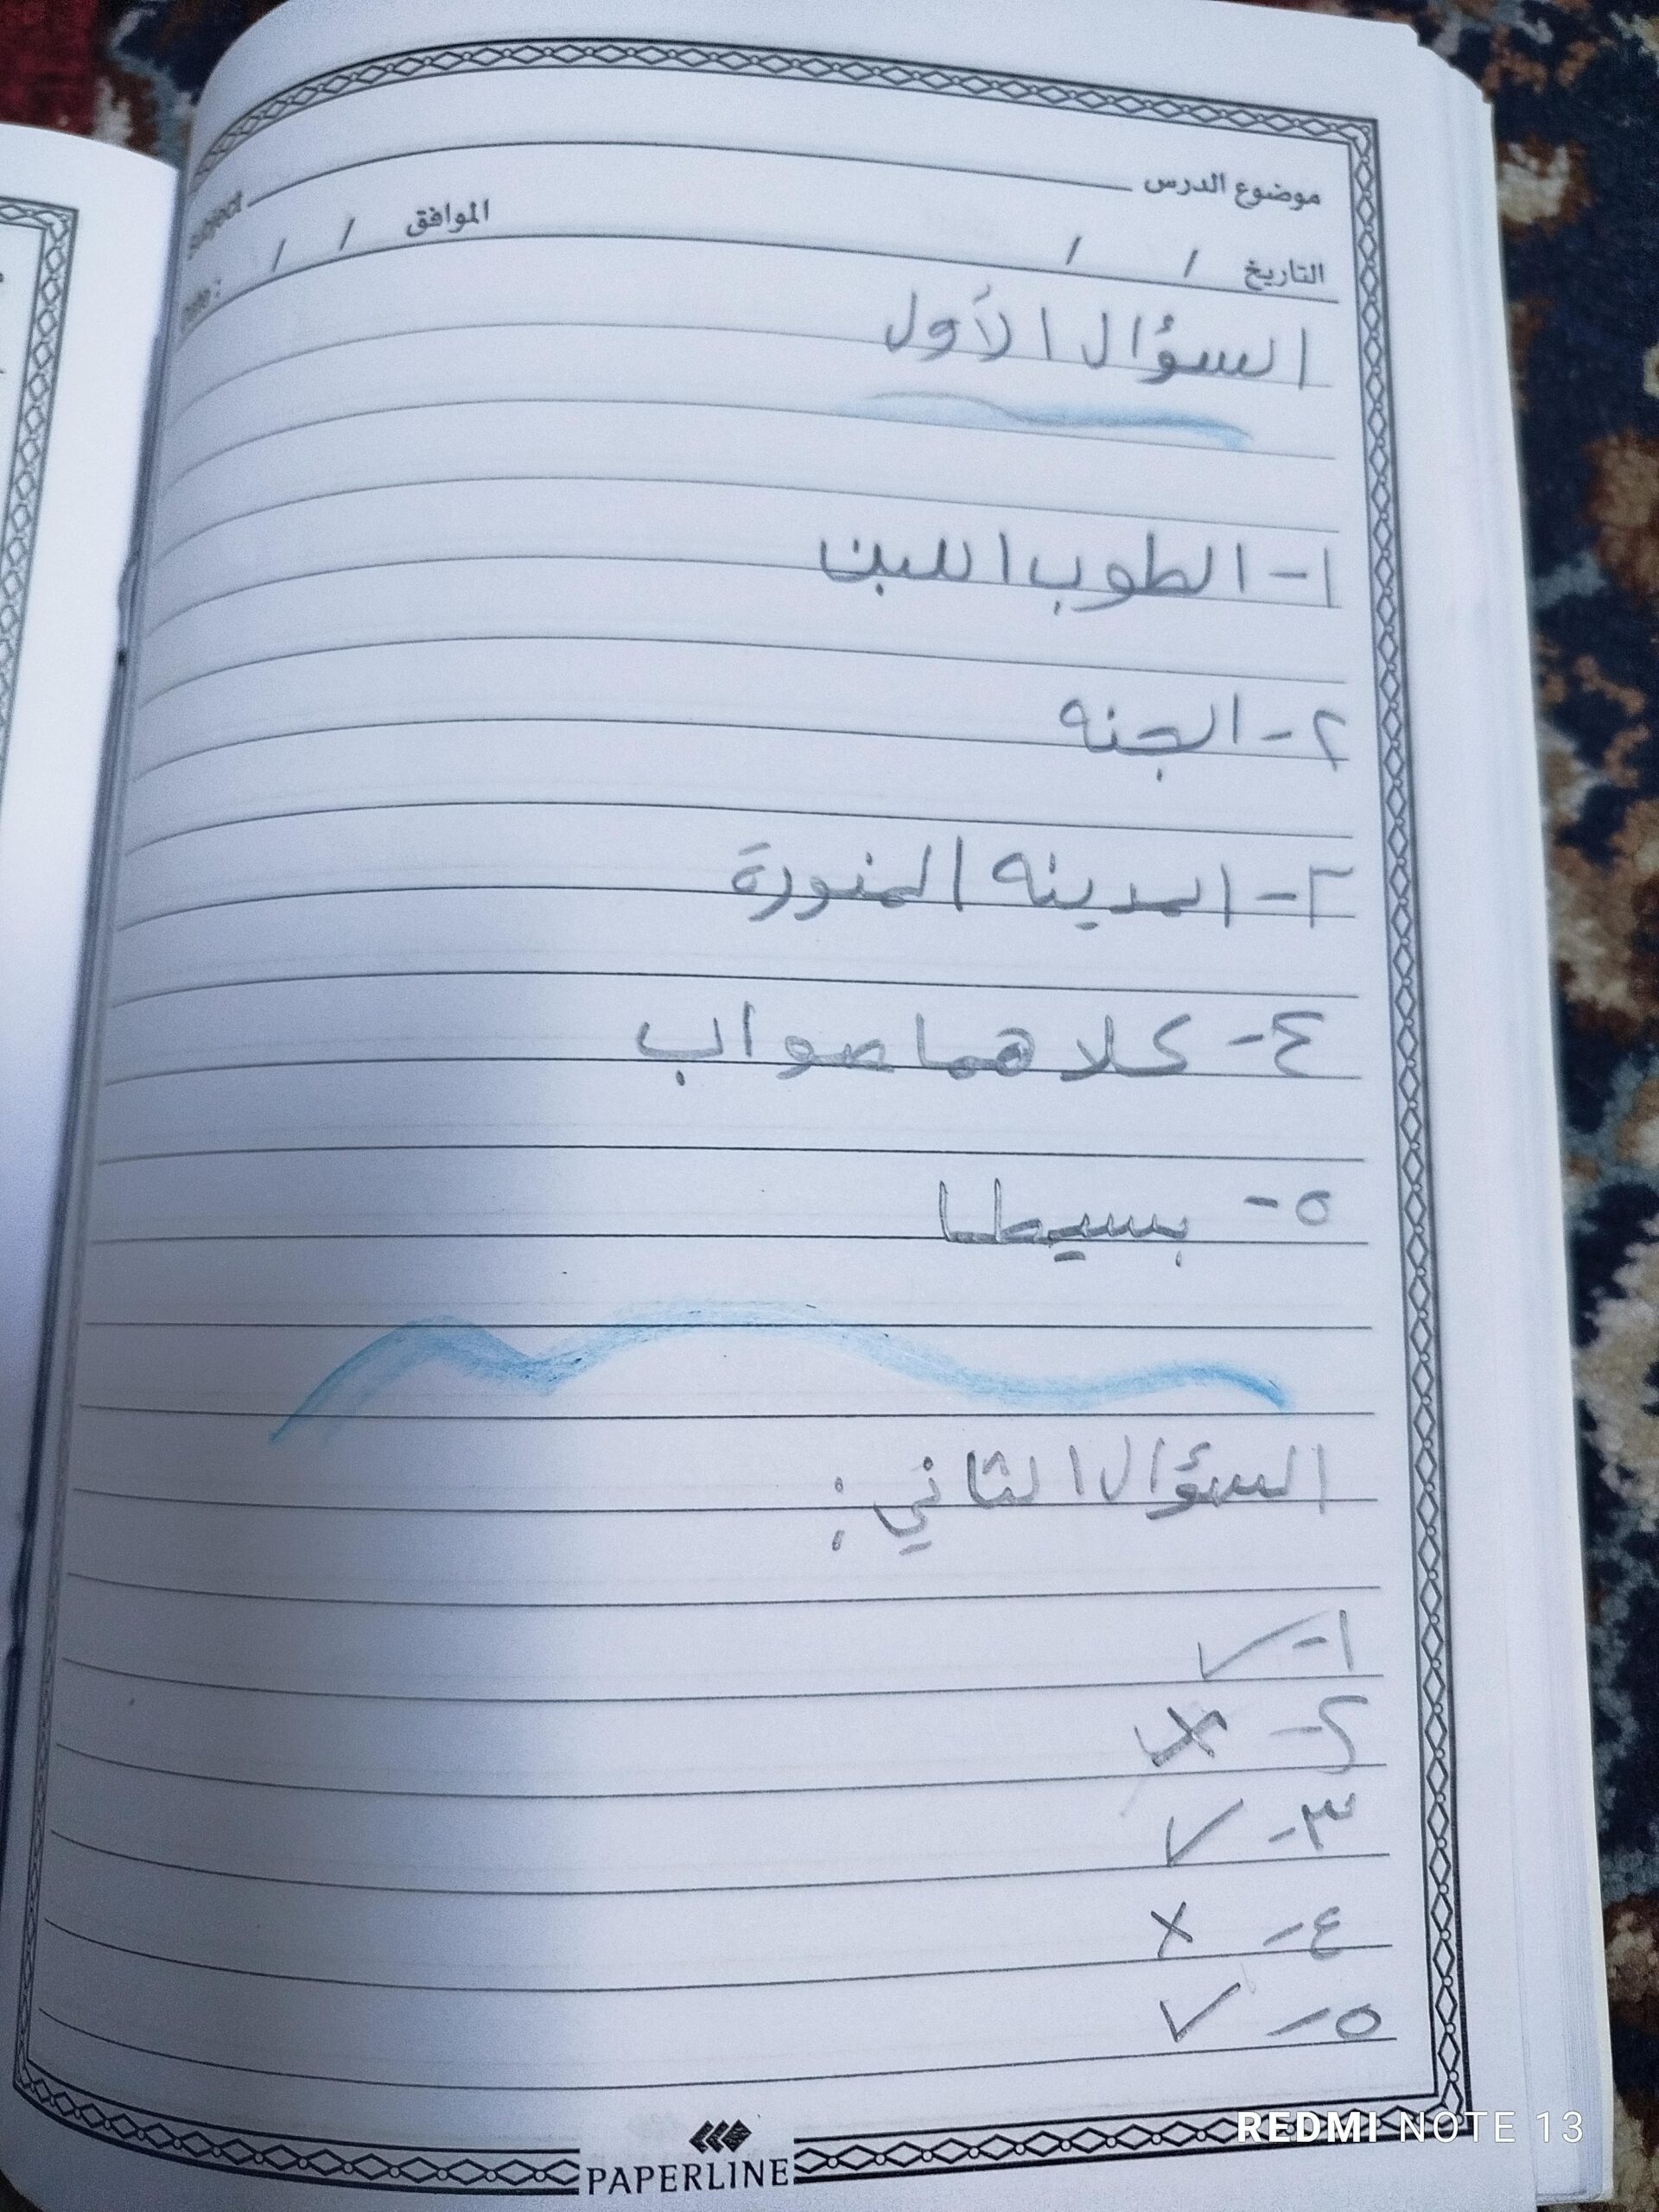 موضوع الدرس Subject
التاريخ / / الموافق / / Date :
السؤال الأول
١- الطوب اللبن
٢- الجنه
٣- المدينه المنورة
٤- كلا هما صواب
٥- بسيطا
السؤال الثاني :
١- ✓
٢- ×
٣- ✓
٤- ×
٥- ✓
PAPERLINE
REDMI NOTE 13